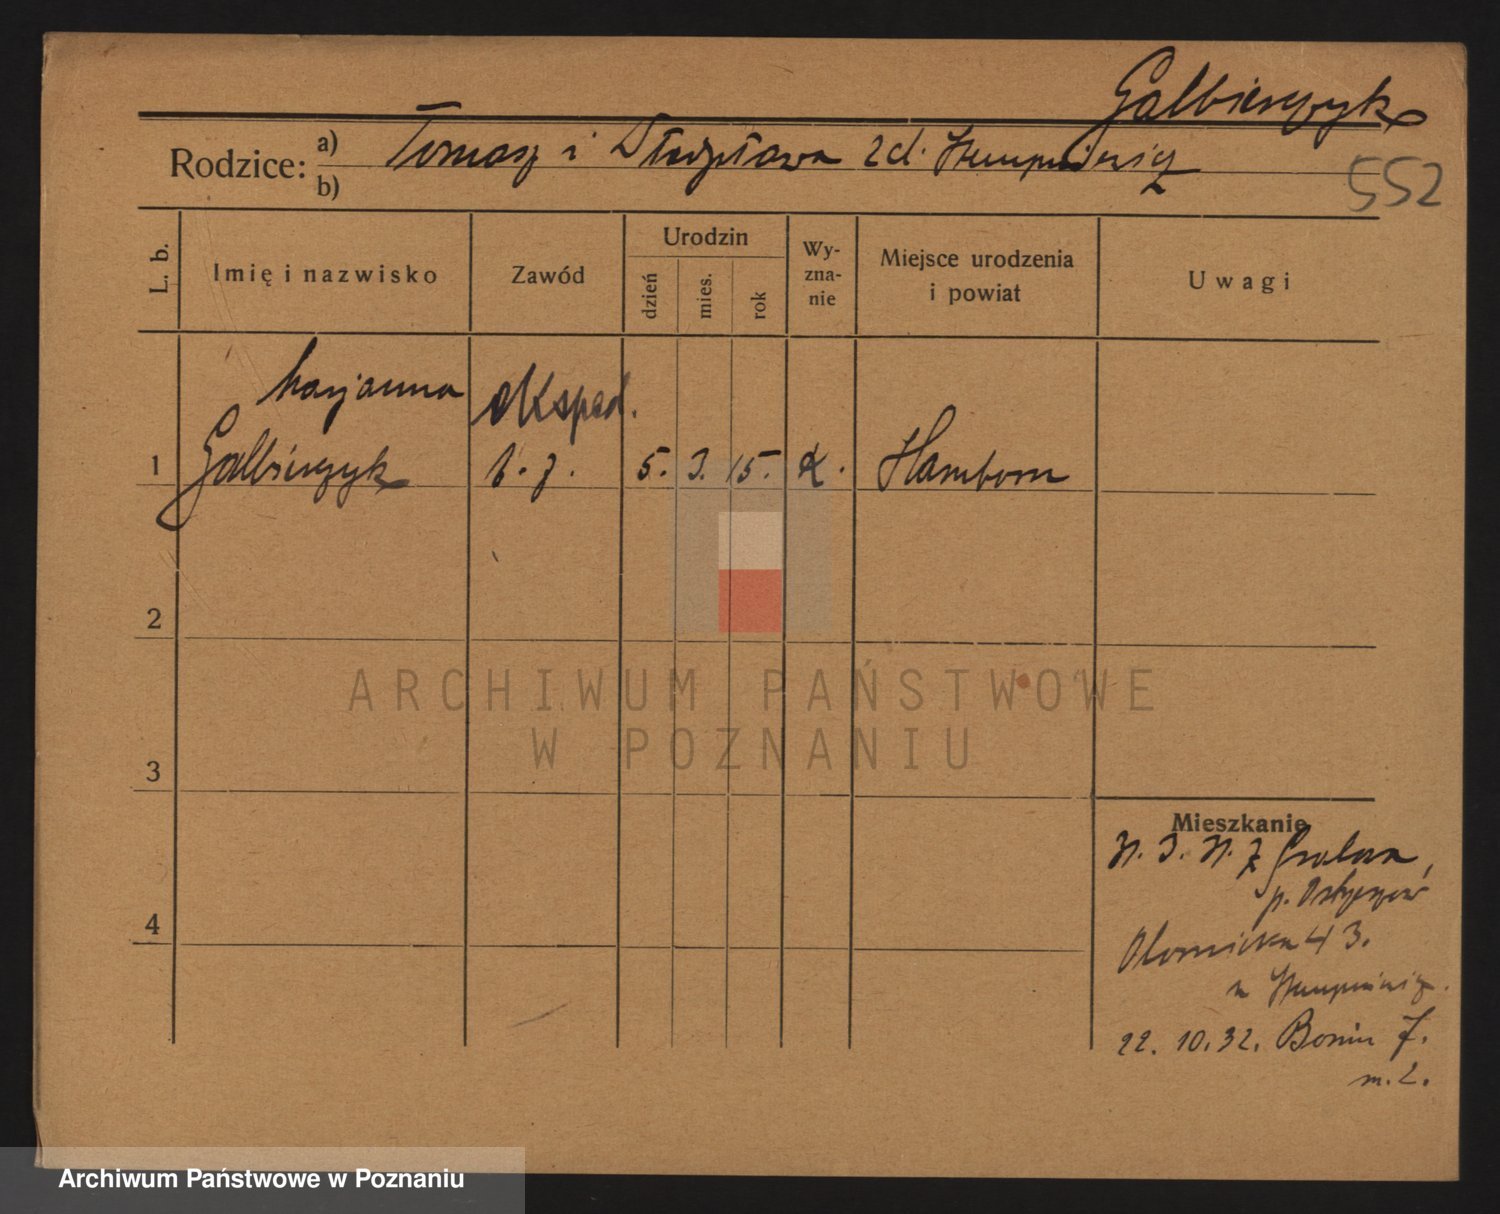 Galbierczyk
Rodzice: a) Tomasz i Władysława
b)
552
L. b.
Imię i nazwisko
Zawód
Urodzin
dzień
mies.
rok
Wy-
zna-
nie
Miejsce urodzenia
i powiat
Uwagi
Marjanna
eksped.
1 Galbierczyk b. z. 5. 3. 15. K. Hamborn
2
3
4
ARCHIWUM PAŃSTWOWE
W POZNANIU
Mieszkanie
p. Ostrzeszów
43.
22. 10. 32. Bonin 7.
m. 2.
Archiwum Państwowe w Poznaniu